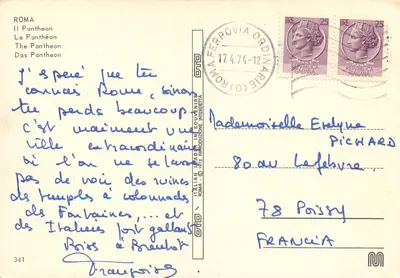 ROMA
Il Pantheon
Le Panthéon
The Pantheon
Das Pantheon
J'espère que tu
connais Rome, sinon
tu perds beaucoup
c'est vraiment une
ville extraordinaire
si l'on ne se lasse
pas de voir des ruines
des temples à colonnades
des Fontaines, ... et
des Italiens fort gallant
Bises à Bientot
Françoise
341
ROMA FERROVIA ORDINARIE (C)
17.4.74-12
25
25
OTO
OTO
Mademoiselle Evelyne
PICHARD
80 av Lefebvre
78 Poissy
FRANCIA